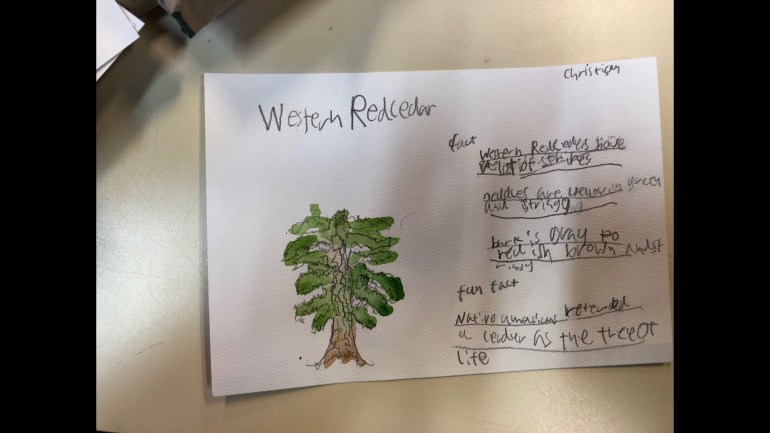 Christian
Western Redcedar
fact
Western Redceders have
a lot of stripes
neddles are yellowish green
and stringy
bark is Gray to
redish brown and st
ringy
fun fact
Native americans refended
a ceder as the thee of
life